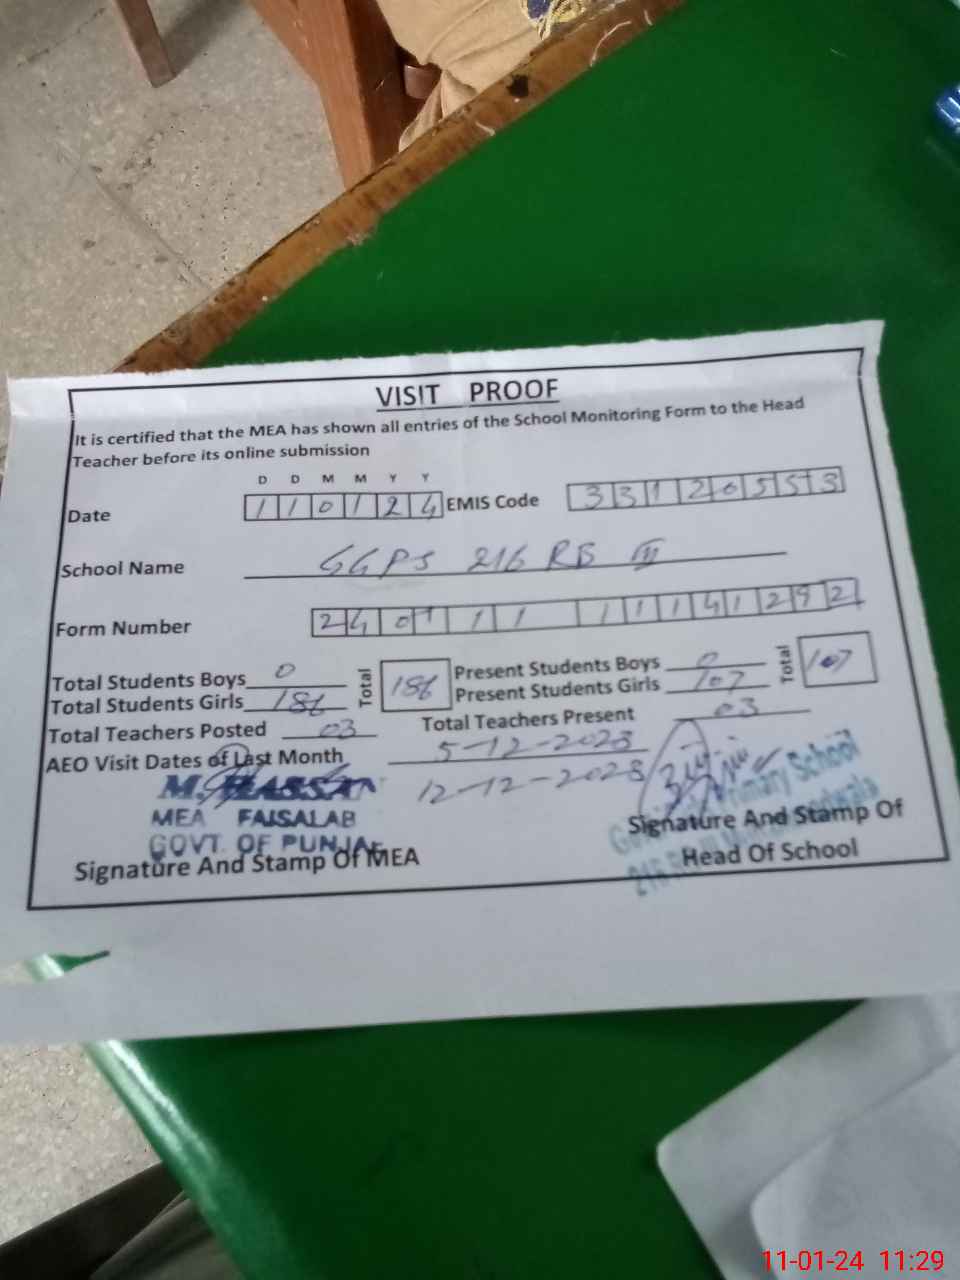 VISIT PROOF
It is certified that the MEA has shown all entries of the School Monitoring Form to the Head
Teacher before its online submission
D D M M Y Y
Date 110124 EMIS Code 33120553
School Name GGPS 216 RB III
Form Number 2401 11 11141292
Total Students Boys 0 Total 186 Present Students Boys 0 Total 107
Total Students Girls 186 Present Students Girls 107
Total Teachers Posted 03 Total Teachers Present 03
AEO Visit Dates of Last Month 5-12-2023
12-12-2023
M. HASSAN
MEA FAISALAB
GOVT. OF PUNJAB
Signature And Stamp Of MEA
Primary School
Signature And Stamp Of
Head Of School
11-01-24 11:29